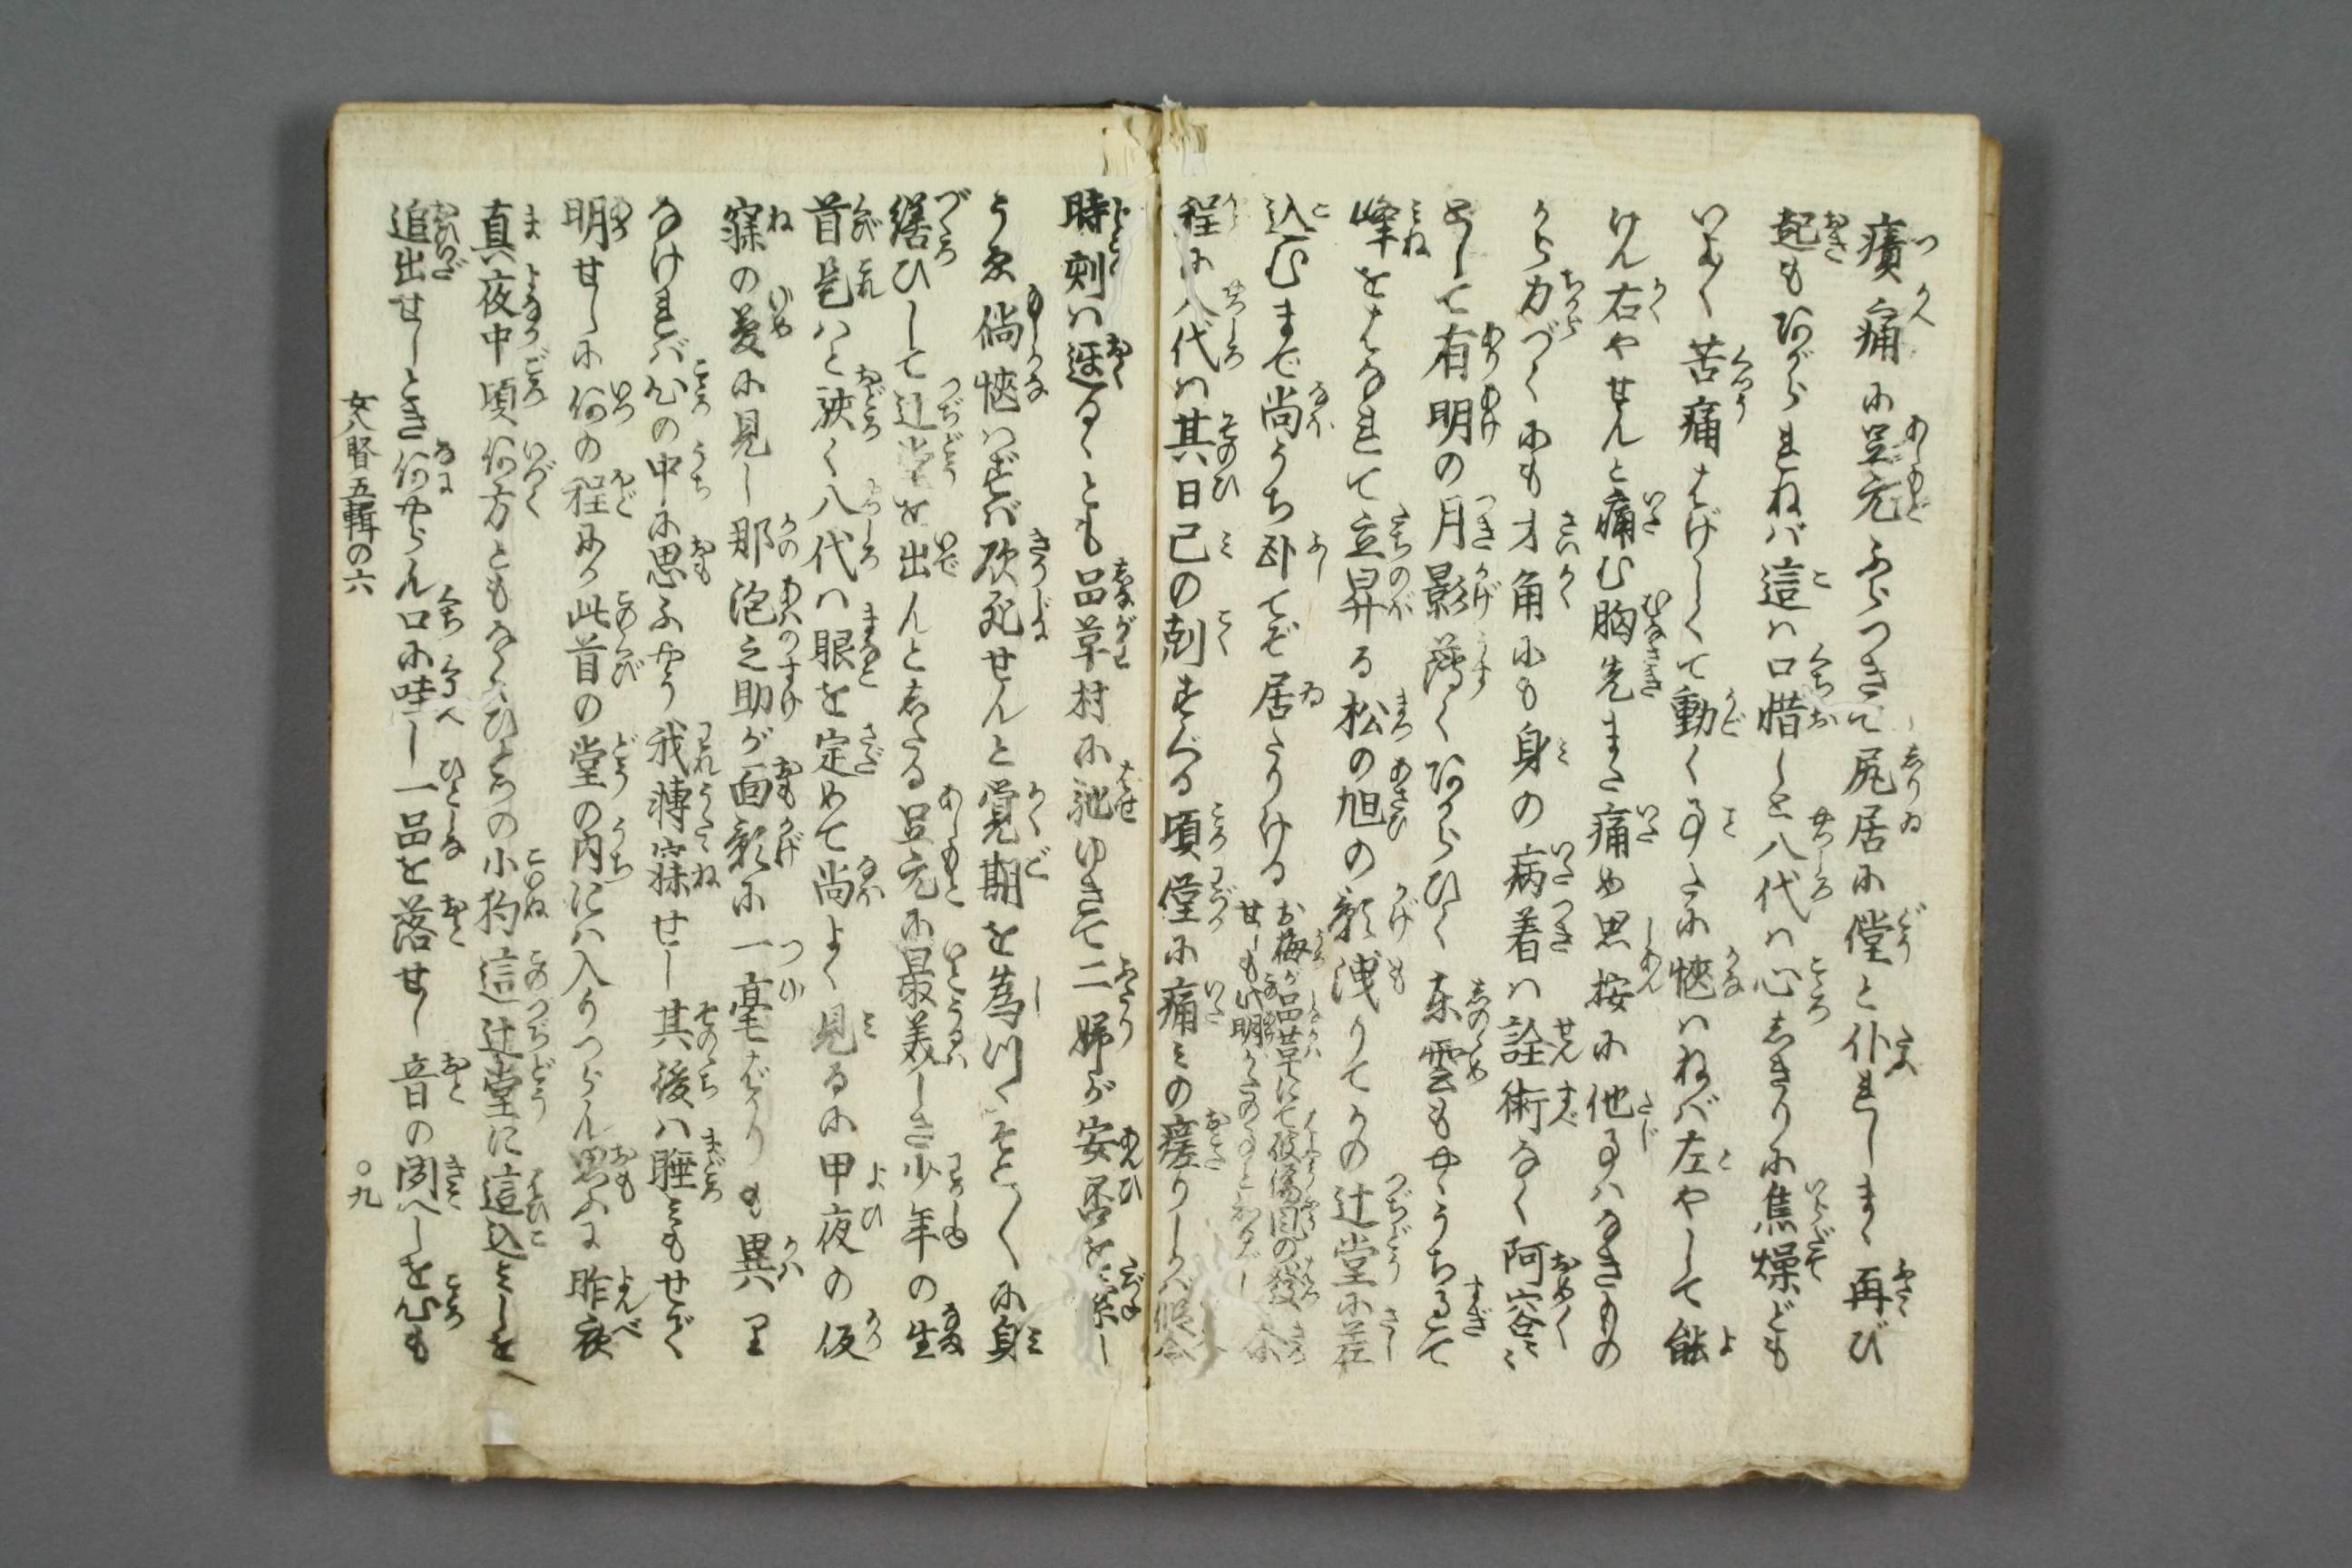 痛に足元ふらつきて尻居に僵と仆れしまゝ再び
起もあがられねバ這ハ口惜しと八代ハ心しきりに焦燥ども
いよ〳〵苦痛はげしくて動く事さへに愜ハねバ左やして能
けん右やせんと痛む胸先また痛め思按に他事ハなきものゝ
から力づくにも才角にも身の病着ハ詮術なく阿容〻
として有明の月影薄くあからひく東雲もやゝうちすぎて
峰をはなれて立昇る松の旭の影洩りてかの辻堂に差
込むまで尚うち臥てぞ居たりける
程に八代ハ其日巳の刻すぐる頃に痛ミの瘥りしかバ
時刻ハ遅るゝとも品草村に馳ゆきて二婦が安否を索し
うへ倘愜ハずバ砍死せんと覚期を為つゝそこ〳〵に身
繕ひして辻堂を出んとしたる足元に最美しき少年の生
首是ハと駭く八代ハ眼を定めて尚よく見るに甲夜の仮
寐の夢に見し那泡之助が面影に一毫ばかりも異ハ
なけれバ心の中に思ふやう我轉寐せし其後ハ睡もせで
明せしに何の程にか此首の堂の内にハ入りつらん思ふに昨夜
真夜中頃何方ともなくひとつの小狗這辻堂に這込ミしを
追出せしとき何やらん口に哇し一品を落せし音の聞へしを心も
女八賢五輯の六
〇九